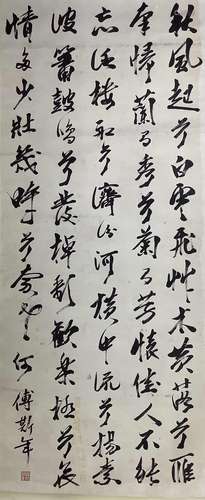 秋風起兮白雲飛草木黃落兮雁
南歸蘭有秀兮菊有芳懷佳人不能
忘泛樓船兮濟汾河橫中流兮揚素
波簫鼓鳴兮發棹歌歡樂極兮哀
情多少壯幾時兮奈老何
傅斯年